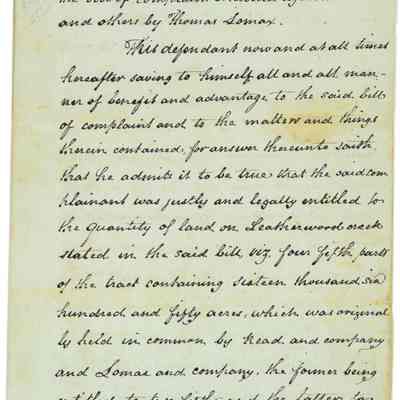 the bill of complaint
and others by Thomas Lomax.
This defendant now and at all times
hereafter saving to himself all and all man-
ner of benefit and advantage to the said bill
of complaint and to the matters and things
therein contained, for answer thereunto saith,
that he admits it to be true that the said com
plainant was justly and legally entitled to
the quantity of land on Leatherwood creek
stated in the said bill, viz, four fifth parts
of the tract containing sixteen thousand, six
hundred and fifty acres, which was original
ly held in common by Read, and company
and Lomax and company, the former being
entitled to two fifths and the latter to